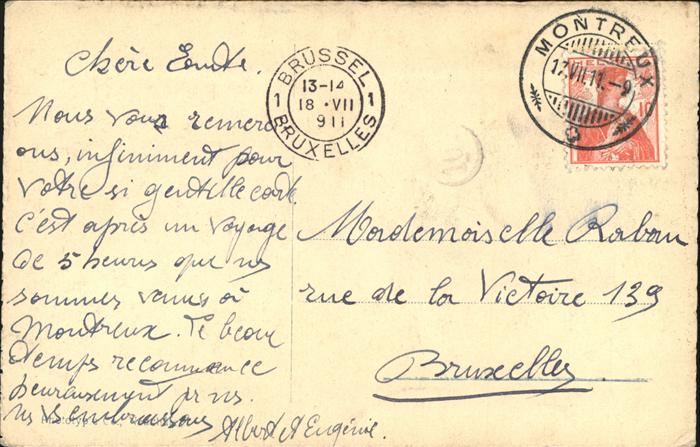 Chère Tante.
Nous vous remerci
ons, infiniment pour
votre si gentille carte.
C'est après un voyage
de 5 heures que ns
sommes venus à
Montreux. Le beau
temps recommence
heureusement pr ns.
ns vs embrassons
Albert et Eugénie.
BRÜSSEL
1 1
13-14
18 · VII
911
BRUXELLES
MONTREUX
17.VII.11.-9
HELVETIA
10
Mademoiselle Rabau
rue de la Victoire 139
Bruxelles